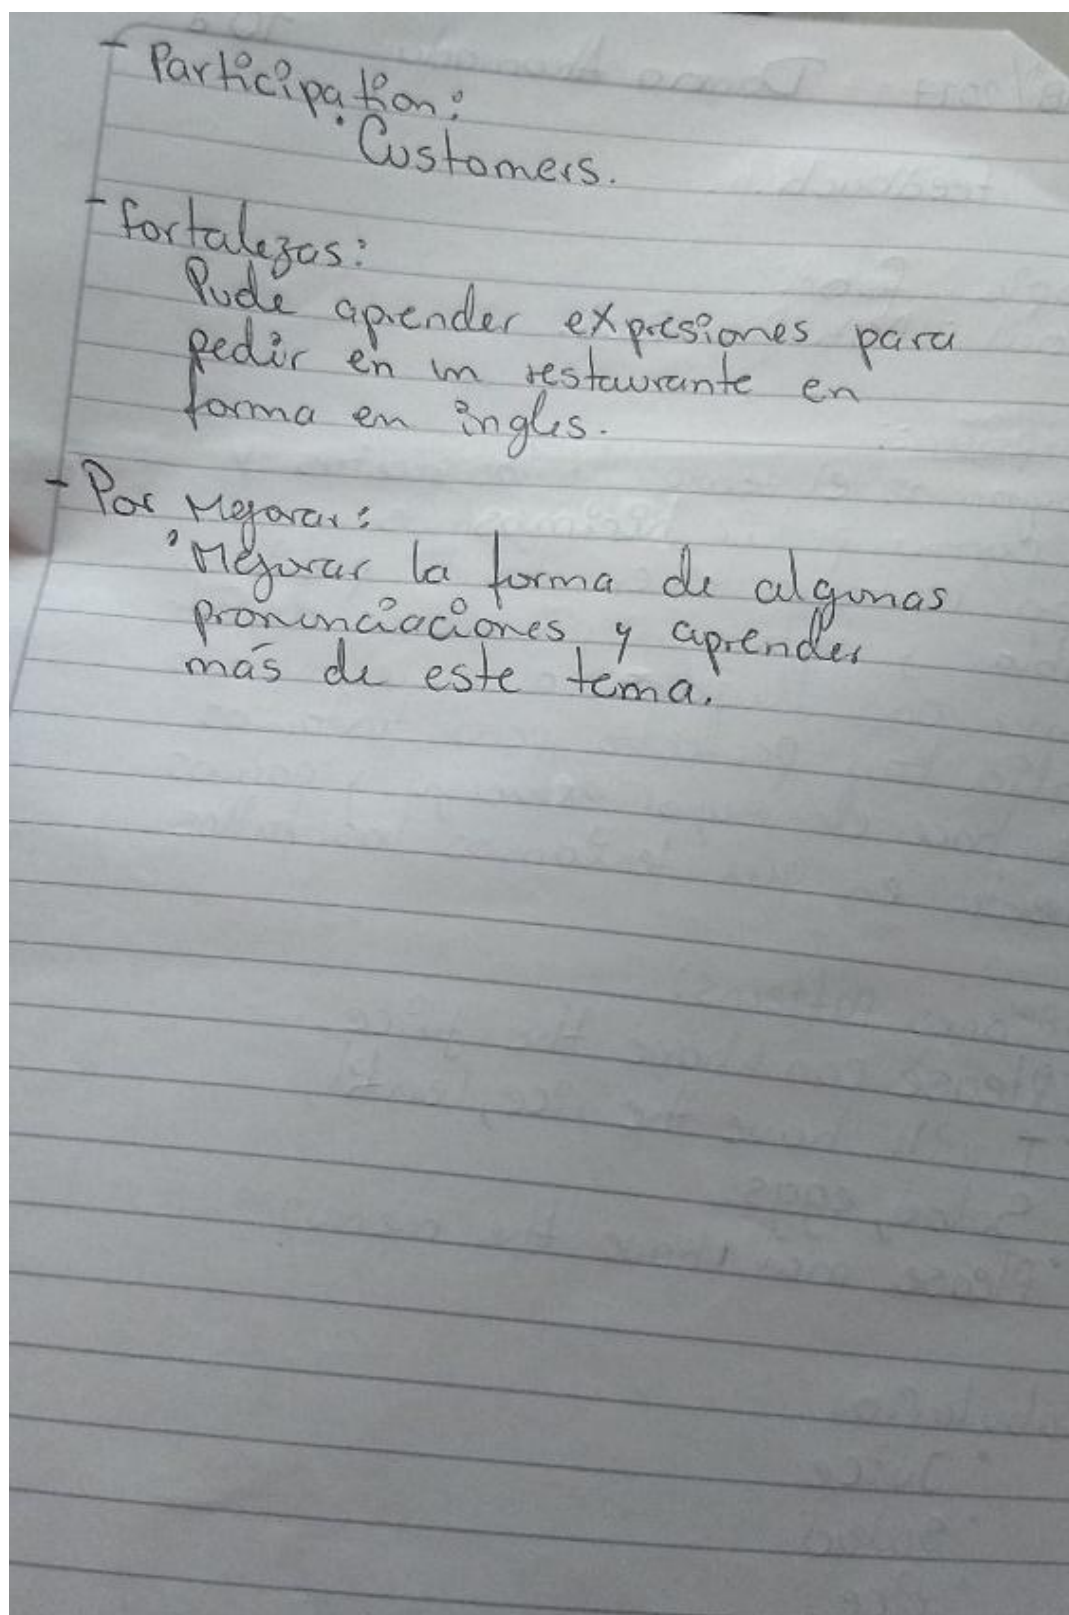 - Participation:
· Customers.
- fortalezas:
Pude aprender expresiones para
pedir en un restaurante en
forma en ingles.
- Por Mejorar:
· Mejorar la forma de algunas
pronunciaciones y aprender
más de este tema.